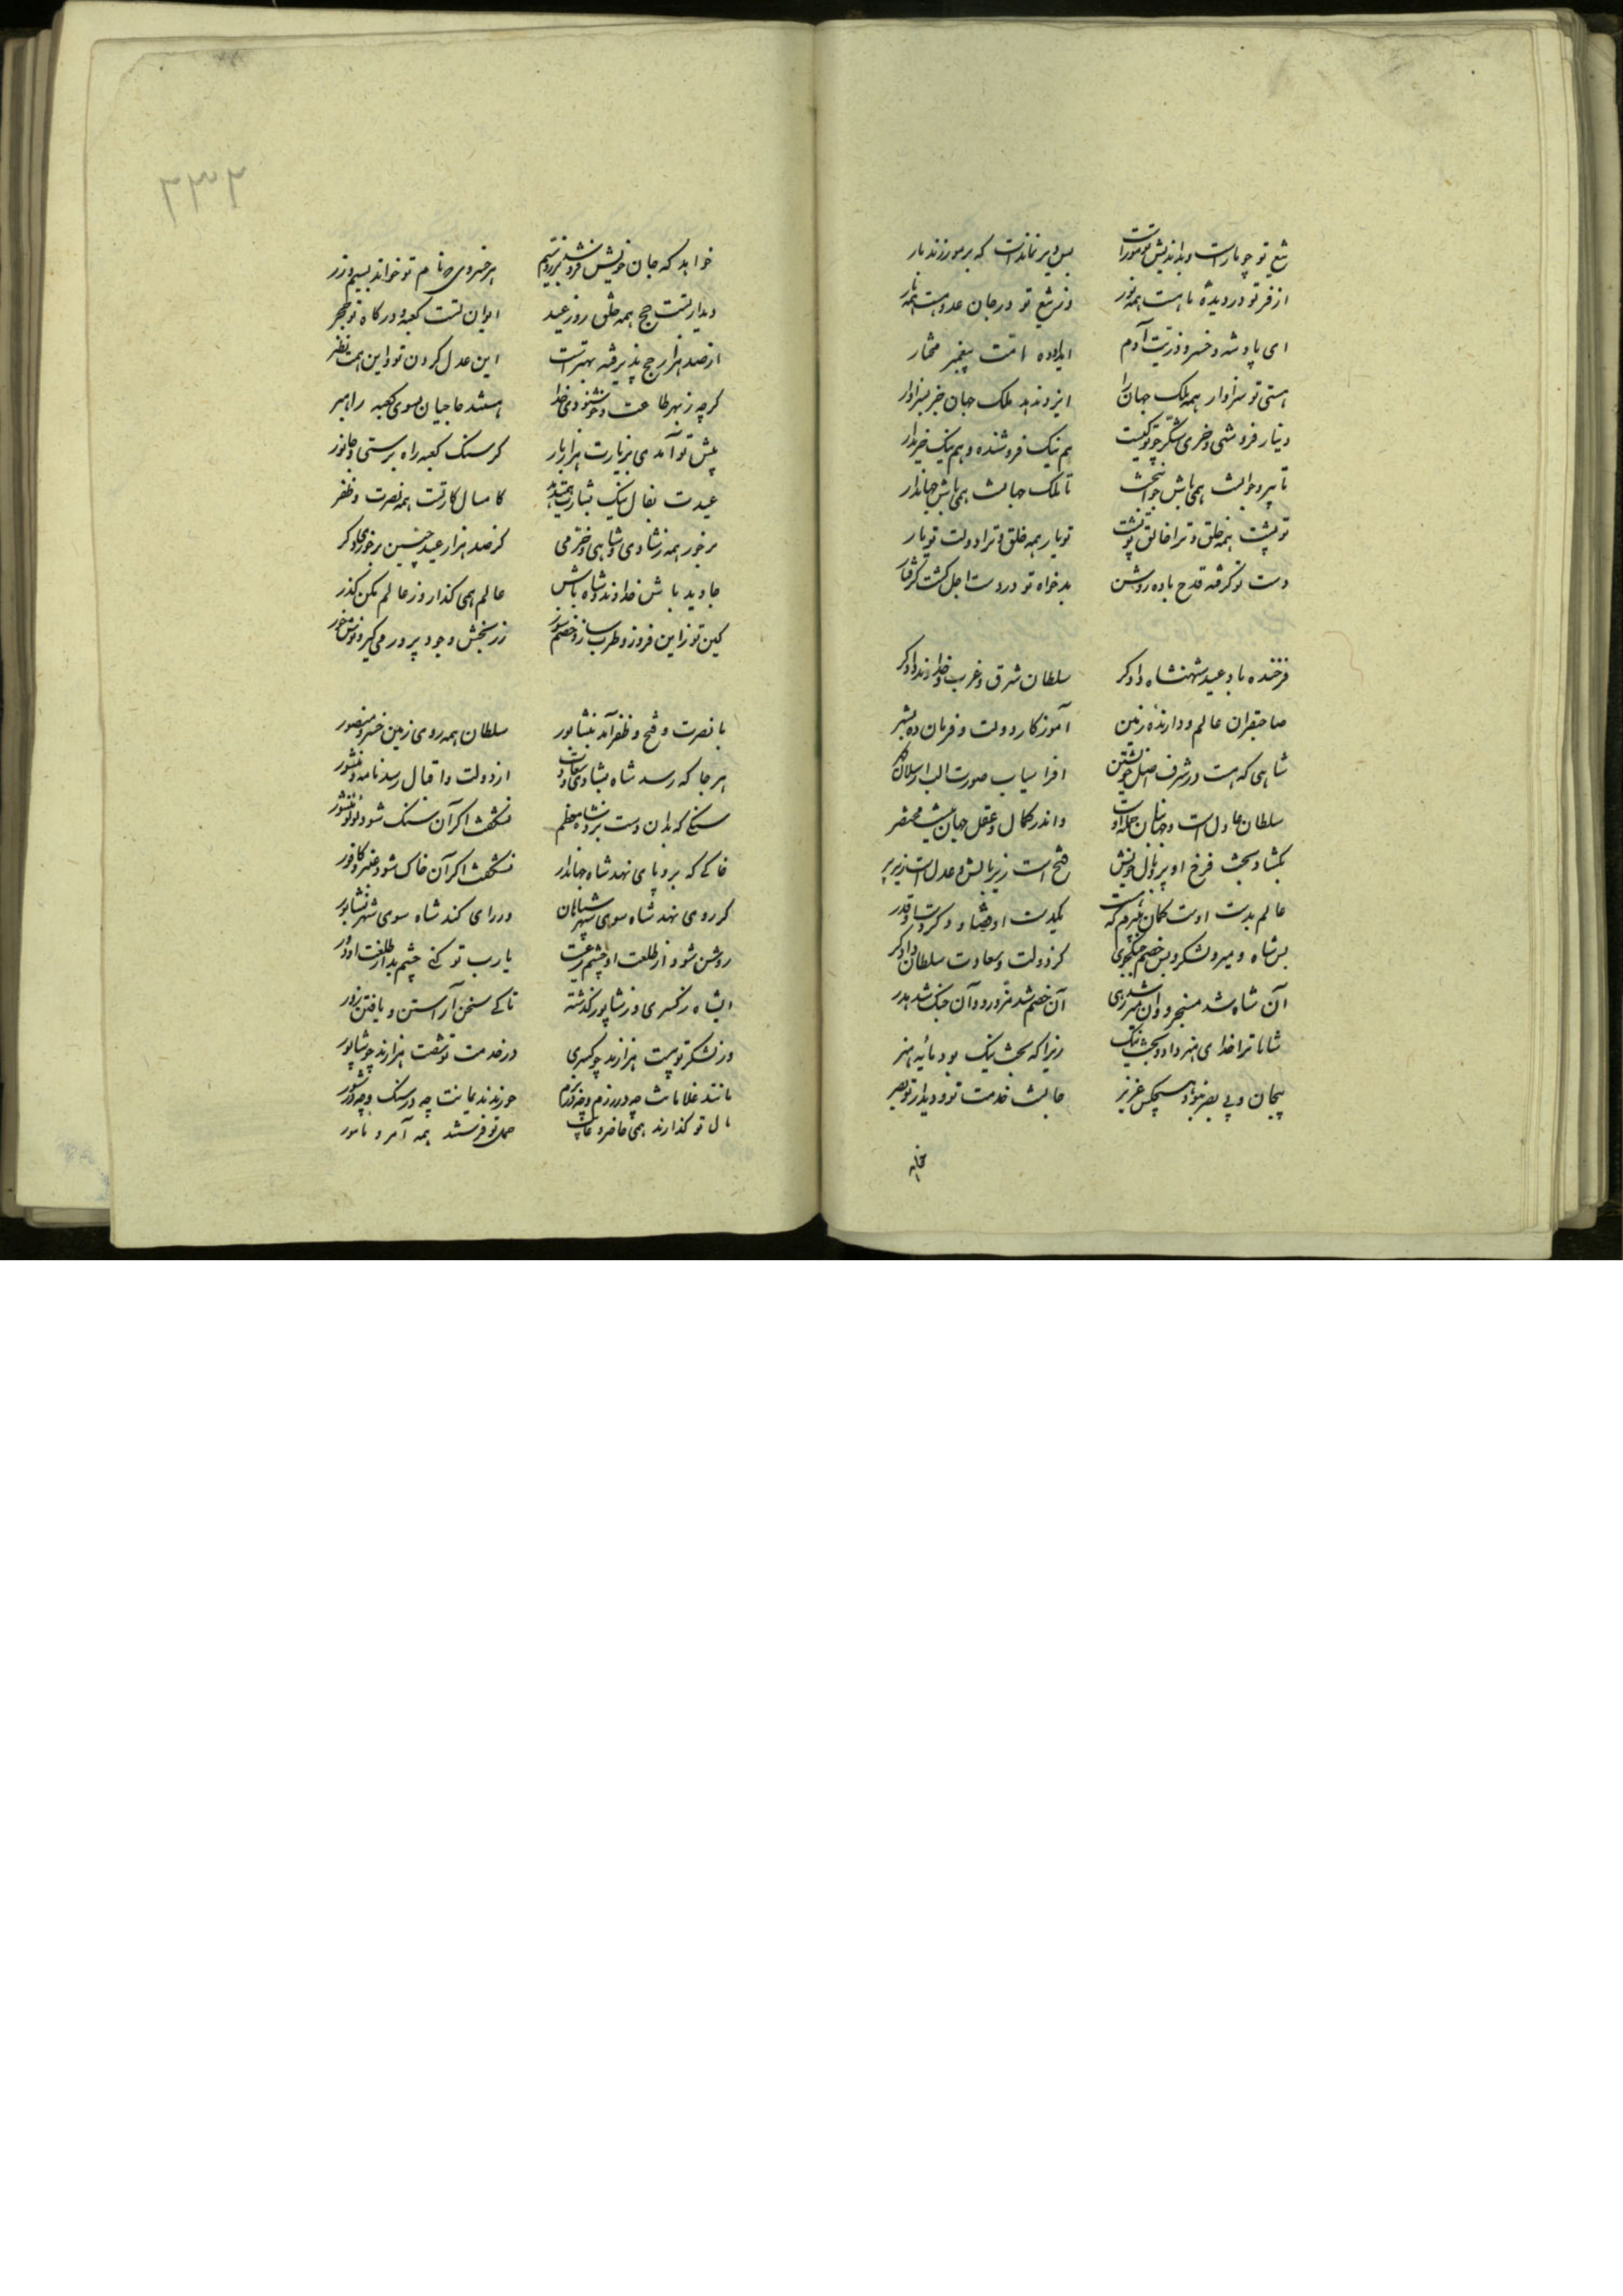 تیغ تو چو مارست و بداندیش تو مورست بس دیر نماندست که بر مور زند مار
از فر تو در دیدهٔ ما هست همه نور وز تیغ تو در جان عدو هست همه نار
ای پادشه و خسرو ذریت آدم ای داده امت پیغمبر مختار
هستی تو سزاوار همه ملک جهان را ایزد ندهد ملک جهان جز بسزاوار
دینار فروشی و خری شکر چو تو کیست هم نیک فروشنده و هم نیک خریدار
تا پیر و جوانست همی باش جوانبخت تا ملک جهانست همی باش جهاندار
تو پشت همه خلق و ترا خالق تو پشت تو یار همه خلق و ترا دولت تو یار
دست تو گرفته قدح باده روشن بدخواه تو در دست اجل گشت گرفتار
فرخنده باد عید شهنشاه دادگر سلطان شرق و غرب خداوند دادگر
صاحبقران عالم و دارندهٔ زمین آموزگار دولت و فرمان ده بشر
شاهی که هست در شرف اصل خویشتن افراسیاب صورت الب ارسلان
سلطان عادل است و جهانبان جمله اوست واندر کمال و عقل جهانیست مختصر
بگشاد بخت فرخ او پر و بال خویش فتح است زیر بالش و عدل است زیر پر
عالم بدست اوست گمان مبرم که هست یکدست او قضا و دگر دست او قدر
بس شاه و میر و لشکر و بس خصم جنگجوی کز دولت و سعادت سلطان دادگر
آن شاه شد مسخر و آن میر شد رهی آن خصم شد مزور و آن جنگ شد هدر
شاها ترا خدای هنر داد و بخت نیک زیرا که بخت نیک بود مائیه هنر
بیجان و بی بصر نبود هیچکس عزیز جانست خدمت تو و دیدار تو بصر
۲۳۲
خواهد که جان خویش فروشد بزر و سیم هر خسروی که نام تو خواند بسیم و زر
دیدار تست حج همه خلق روز عید ایوان تست کعبه و درگاه تو حجر
از صد هزار حج پذیرفته بهترست این عدل کردن تو و این همت نظر
گرچه ز بهر طاعت و خوشنودی خدا هستند حاجیان بسوی کعبه راهبر
پیش تو آمدی بزیارت هزار بار گر سنگ کعبه راه برستی و جانور
عیدت بفال نیک بشارت همیدهد کامسال کار تست همه نصرت و ظفر
برخور همه ز شادی و شاهی و خرمی کز صد هزار عید چنین برخوری دگر
جاوید باش خداوند و شاه باش عالم همی گذار و ز عالم مکن گذر
کین توز این فروز و طرب ساز و خصم سوز زر بخش و جود پرور می گیر و نوش خور
با نصرت و فتح و ظفر آمد بنشابور سلطان همه روی زمین خسرو منصور
هر جا که رسد شاه بشادی و سعادت از دولت و اقبال رسد نامه و منشور
سنگی که بدان دست برد شاه معظم نشگفت اگر آن سنگ شود لؤلؤ منثور
خاکی که برو پای نهد شاه جهاندار نشگفت اگر آن خاک شود عنبر و کافور
گر روی نهد شاه سوی شهر سپاهان ور رای کند شاه سوی شهر نشابور
روشن شود از طلعت او چشم رعیت یارب تو کنی چشم بد از طلعت او دور
ای شاه ز کسری و ز شاپور گذشته تا کی سخن آراستن و یافتن زور
در لشکر تو بیست هزارند چو کسری در خدمت تو شصت هزارند چو شاپور
مانند غلامانت چه در رزم و چه در بزم
مال تو گذارند همی حاضر و غایب حمل تو فرستند همه آمر و مامور